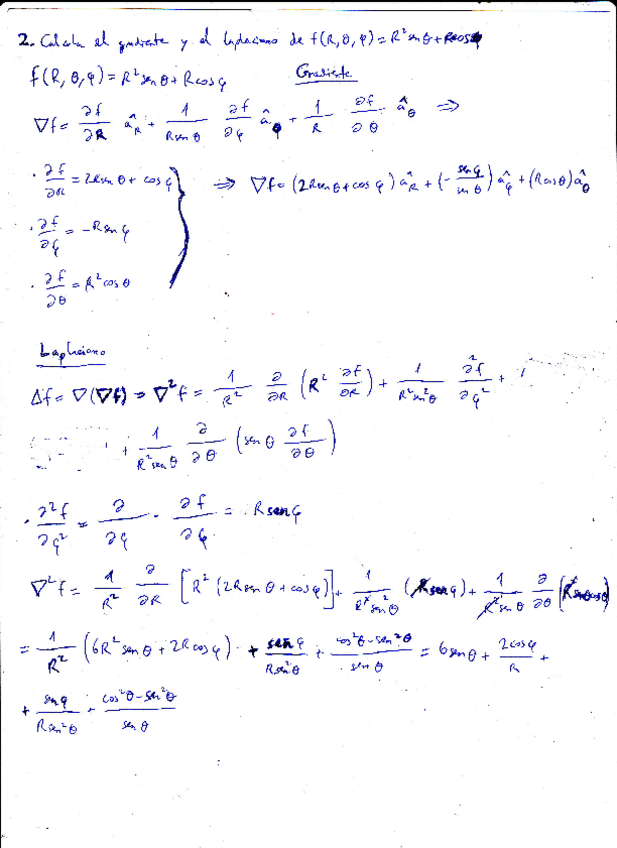 2. Calcula el gradiente y el laplaciano de f(R, θ, φ) = R² sen θ + R cos φ
f(R, θ, φ) = R² sen θ + R cos φ Gradiente
∇f = ∂f/∂R â_R + 1/(R sen θ) ∂f/∂φ â_φ + 1/R ∂f/∂θ â_θ ⇒
· ∂f/∂R = 2R sen θ + cos φ ⇒ ∇f = (2R sen θ + cos φ) â_R + (- sen φ/sen θ) â_φ + (R cos θ) â_θ
· ∂f/∂φ = -R sen φ
· ∂f/∂θ = R² cos θ
Laplaciano
Δf = ∇(∇f) ⇒ ∇²f = 1/R² ∂/∂R (R² ∂f/∂R) + 1/(R² sen² θ) ∂²f/∂φ² +
+ 1/(R² sen θ) ∂/∂θ (sen θ ∂f/∂θ)
· ∂²f/∂φ² = ∂/∂φ · ∂f/∂φ = R sen φ
∇²f = 1/R² ∂/∂R [R² (2R sen θ + cos φ)] + 1/(R² sen² θ) (R sen φ) + 1/(R² sen θ) ∂/∂θ (R² sen θ cos θ)
= 1/R² (6R² sen θ + 2R cos φ) + sen φ/(R sen² θ) + (cos² θ - sen² θ)/sen θ = 6 sen θ + 2 cos φ/R +
+ sen φ/(R sen² θ) + (cos² θ - sen² θ)/sen θ